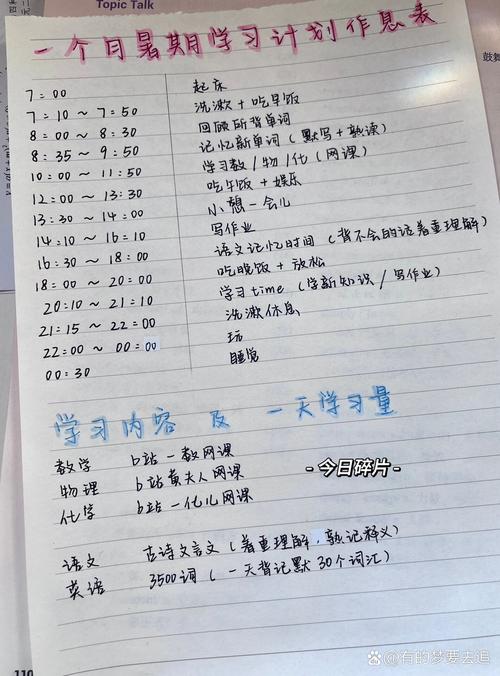 Topic Talk
一个月暑期学习计划作息表
7:00 起床
7:10～7:50 洗漱+吃早饭
8:00～8:30 回顾所背单词
8:35～9:50 记忆新单词(默写+熟读)
10:00～11:50 学习数/物/化(网课)
12:00～13:30 吃午饭+娱乐
13:30～14:00 小憩一会儿
14:10～16:10 写作业
16:30～18:00 语文记忆时间(背不会的话着重理解)
18:00～20:00 吃晚饭+放松
20:10～21:10 学习time(学新知识/写作业)
21:15～22:00 洗漱休息
22:00～00:00 玩
00:30 睡觉
学习内容 及 一天学习量
数学 b站一数网课
物理 b站黄夫人网课
-今日碎片-
化学 b站一化儿网课
语文 古诗文言文(着重理解,熟记释义)
英语 3500词(一天背记默30个词汇)
110
百家号/有的梦要去追
鼓舞